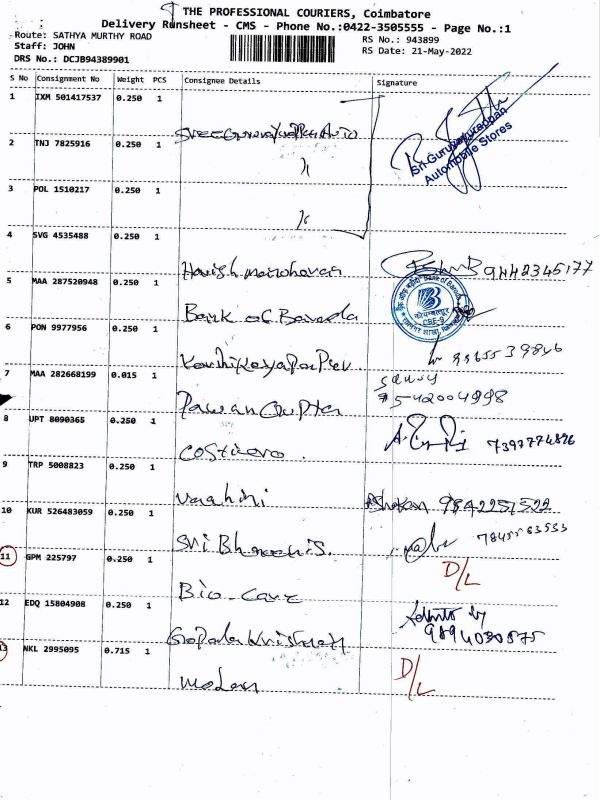 THE PROFESSIONAL COURIERS, Coimbatore
Delivery Runsheet - CMS - Phone No.:0422-3505555 - Page No.:1
Route: SATHYA MURTHY ROAD
RS No.: 943899
Staff: JOHN
RS Date: 21-May-2022
DRS No.: DCJB94389901
S No Consignment No Weight PCS Consignee Details Signature
1 IXM 501417537 0.250 1
Sri Guruvayurappan
Automobile Stores
2 TNJ 7825916 0.250 1
3 POL 1510217 0.250 1
4 SVG 4535488 0.250 1
Harish manoharan 9442345177
5 MAA 287520948 0.250 1
Bank of Baroda
Bank of Baroda
CBE-9
6 PON 9977956 0.250 1
7 MAA 282668199 0.015 1
Pawan Gupta
8 UPT 8090365 0.250 1
9 TRP 5008823 0.250 1
Vaahini 9842251522
10 KUR 526483059 0.250 1
11 GPM 225797 0.250 1
Bio-Care D/L
12 EDQ 15804908 0.250 1
Gopala Krishnan
13 NKL 2995095 0.715 1
D/L